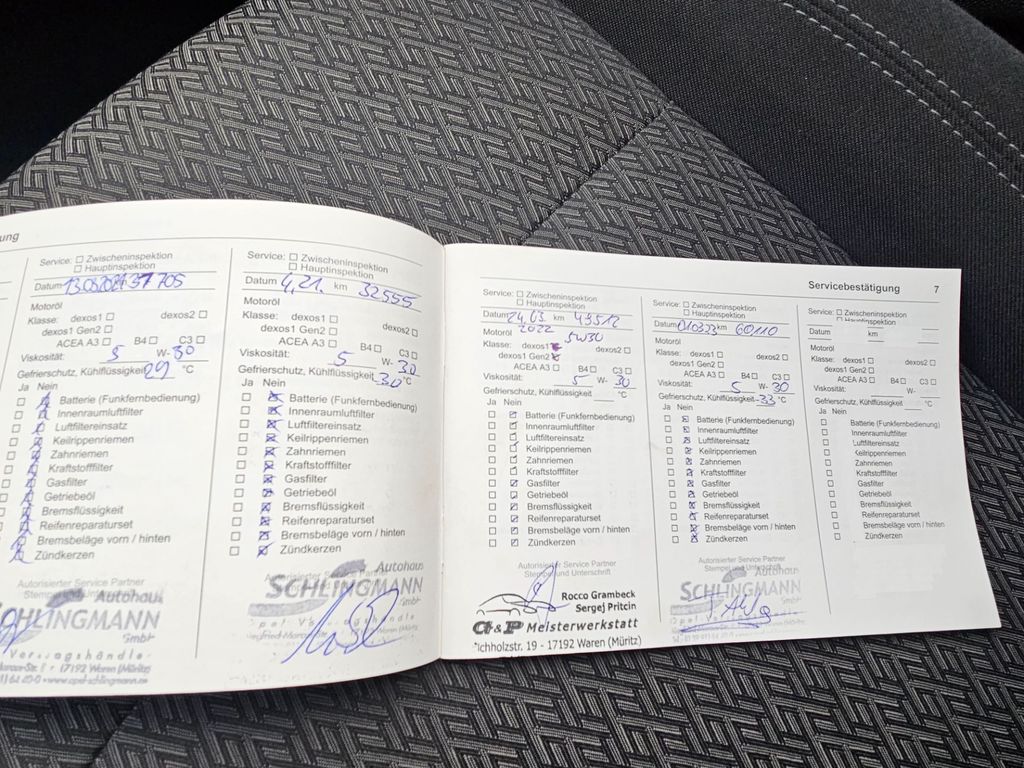 ung
Service: ☐ Zwischeninspektion
☐ Hauptinspektion
Datum
Motoröl
Klasse: dexos1 ☐ dexos2 ☐
dexos1 Gen2 ☐
ACEA A3 ☐ B4 ☐ C3 ☐
Viskosität: 5 W- 30
Gefrierschutz, Kühlflüssigkeit 29 °C
Ja Nein
Batterie (Funkfernbedienung)
Innenraumluftfilter
Luftfiltereinsatz
Keilrippenriemen
Zahnriemen
Kraftstofffilter
Gasfilter
Getriebeöl
Bremsflüssigkeit
Reifenreparaturset
Bremsbeläge vorn / hinten
Zündkerzen
Autorisierter Service Partner
Autohaus
HLINGMANN
GmbH
17192 Waren (Müritz)
www.opel-schlingmann.de
Service: ☐ Zwischeninspektion
☐ Hauptinspektion
Datum 4.21. km 32555
Motoröl
Klasse: dexos1 ☐ dexos2 ☐
dexos1 Gen2 ☐
ACEA A3 ☐ B4 ☐ C3 ☐
Viskosität: 5 W- 30
Gefrierschutz, Kühlflüssigkeit -30 °C
Ja Nein
Batterie (Funkfernbedienung)
Innenraumluftfilter
Luftfiltereinsatz
Keilrippenriemen
Zahnriemen
Kraftstofffilter
Gasfilter
Getriebeöl
Bremsflüssigkeit
Reifenreparaturset
Bremsbeläge vorn / hinten
Zündkerzen
Autorisierter Service Partner
Autohaus
SCHLINGMANN
GmbH
Servicebestätigung 7
Service: ☐ Zwischeninspektion
☐ Hauptinspektion
Datum 24.03. km 43512
2022
Motoröl 5W30
Klasse: dexos1 dexos2 ☐
dexos1 Gen2
ACEA A3 ☐ B4 ☐ C3 ☐
Viskosität: 5 W- 30
Gefrierschutz, Kühlflüssigkeit °C
Ja Nein
Batterie (Funkfernbedienung)
Innenraumluftfilter
Luftfiltereinsatz
Keilrippenriemen
Zahnriemen
Kraftstofffilter
Gasfilter
Getriebeöl
Bremsflüssigkeit
Reifenreparaturset
Bremsbeläge vorn / hinten
Zündkerzen
Autorisierter Service Partner
Stempel und Unterschrift
Rocco Grambeck
Sergej Pritcin
G&P Meisterwerkstatt
ichholzstr. 19 - 17192 Waren (Müritz)
Service: ☐ Zwischeninspektion
☐ Hauptinspektion
Datum 010323 km 60110
Motoröl
Klasse: dexos1 ☐ dexos2 ☐
dexos1 Gen2 ☐
ACEA A3 ☐ B4 ☐ C3 ☐
Viskosität: 5 W- 30
Gefrierschutz, Kühlflüssigkeit -33 °C
Ja Nein
Batterie (Funkfernbedienung)
Innenraumluftfilter
Luftfiltereinsatz
Keilrippenriemen
Zahnriemen
Kraftstofffilter
Gasfilter
Getriebeöl
Bremsflüssigkeit
Reifenreparaturset
Bremsbeläge vorn / hinten
Zündkerzen
Autorisierter Service Partner
Stempel und Unterschrift
Autohaus
SCHLINGMANN
GmbH
Service: ☐ Zwischeninspektion
☐ Hauptinspektion
Datum km
Motoröl
Klasse: dexos1 ☐ dexos2 ☐
dexos1 Gen2 ☐
ACEA A3 ☐ B4 ☐ C3 ☐
Viskosität: W-
Gefrierschutz, Kühlflüssigkeit °C
Ja Nein
☐ Batterie (Funkfernbedienung)
☐ Innenraumluftfilter
☐ Luftfiltereinsatz
☐ Keilrippenriemen
☐ Zahnriemen
☐ Kraftstofffilter
☐ Gasfilter
☐ Getriebeöl
☐ Bremsflüssigkeit
☐ Reifenreparaturset
☐ Bremsbeläge vorn / hinten
☐ Zündkerzen